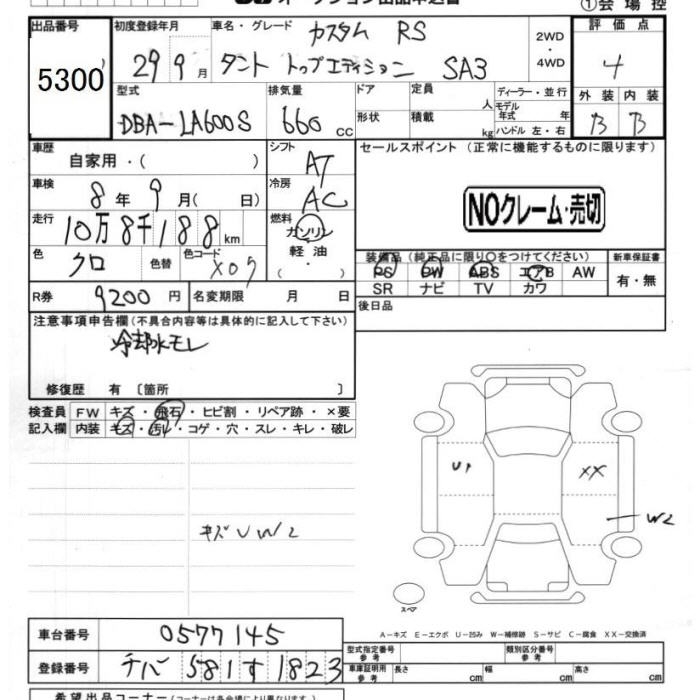 オークション出品申込書 ①会場控
出品番号 初度登録年月 車名・グレード カスタム RS 2WD ・ 4WD 評価点
5300 29 9月 タント トップエディション SA3 4
型式 排気量 ドア 定員 人 ディーラー・並行 外装 内装
DBA-LA600S 660 cc 形状 積載 kg モデル年式 年 ハンドル 左・右 B B
車歴 自家用・( ) シフト AT セールスポイント (正常に機能するものに限ります)
車検 8年 9月( 日) 冷房 AC
NOクレーム・売切
走行 10万8千188km 燃料 ガソリン 軽油 ・
色 クロ 色替 色コード X07 装備品 (純正品に限り○をつけてください) 新車保証書
PS PW ABS エアB AW 有・無
R券 9200円 名変期限 月 日 SR ナビ TV カワ
後日品
注意事項申告欄 (不具合内容等は具体的に記入して下さい)
冷却水モレ
修復歴 有 〔箇所 〕
検査員 FW キズ・飛石・ヒビ割・リペア跡・×要
記入欄 内装 キズ・汚レ・コゲ・穴・スレ・キレ・破レ
U1 XX
W2
キズ U W2
スペア
A-キズ E-エクボ U-凹み W-補修跡 S-サビ C-腐食 XX-交換済
車台番号 0577145
型式指定番号 参考 類別区分番号 参考
登録番号 チバ 581す1823 車庫証明用 参考 長さ cm 幅 cm 高さ cm
希望出品コーナー